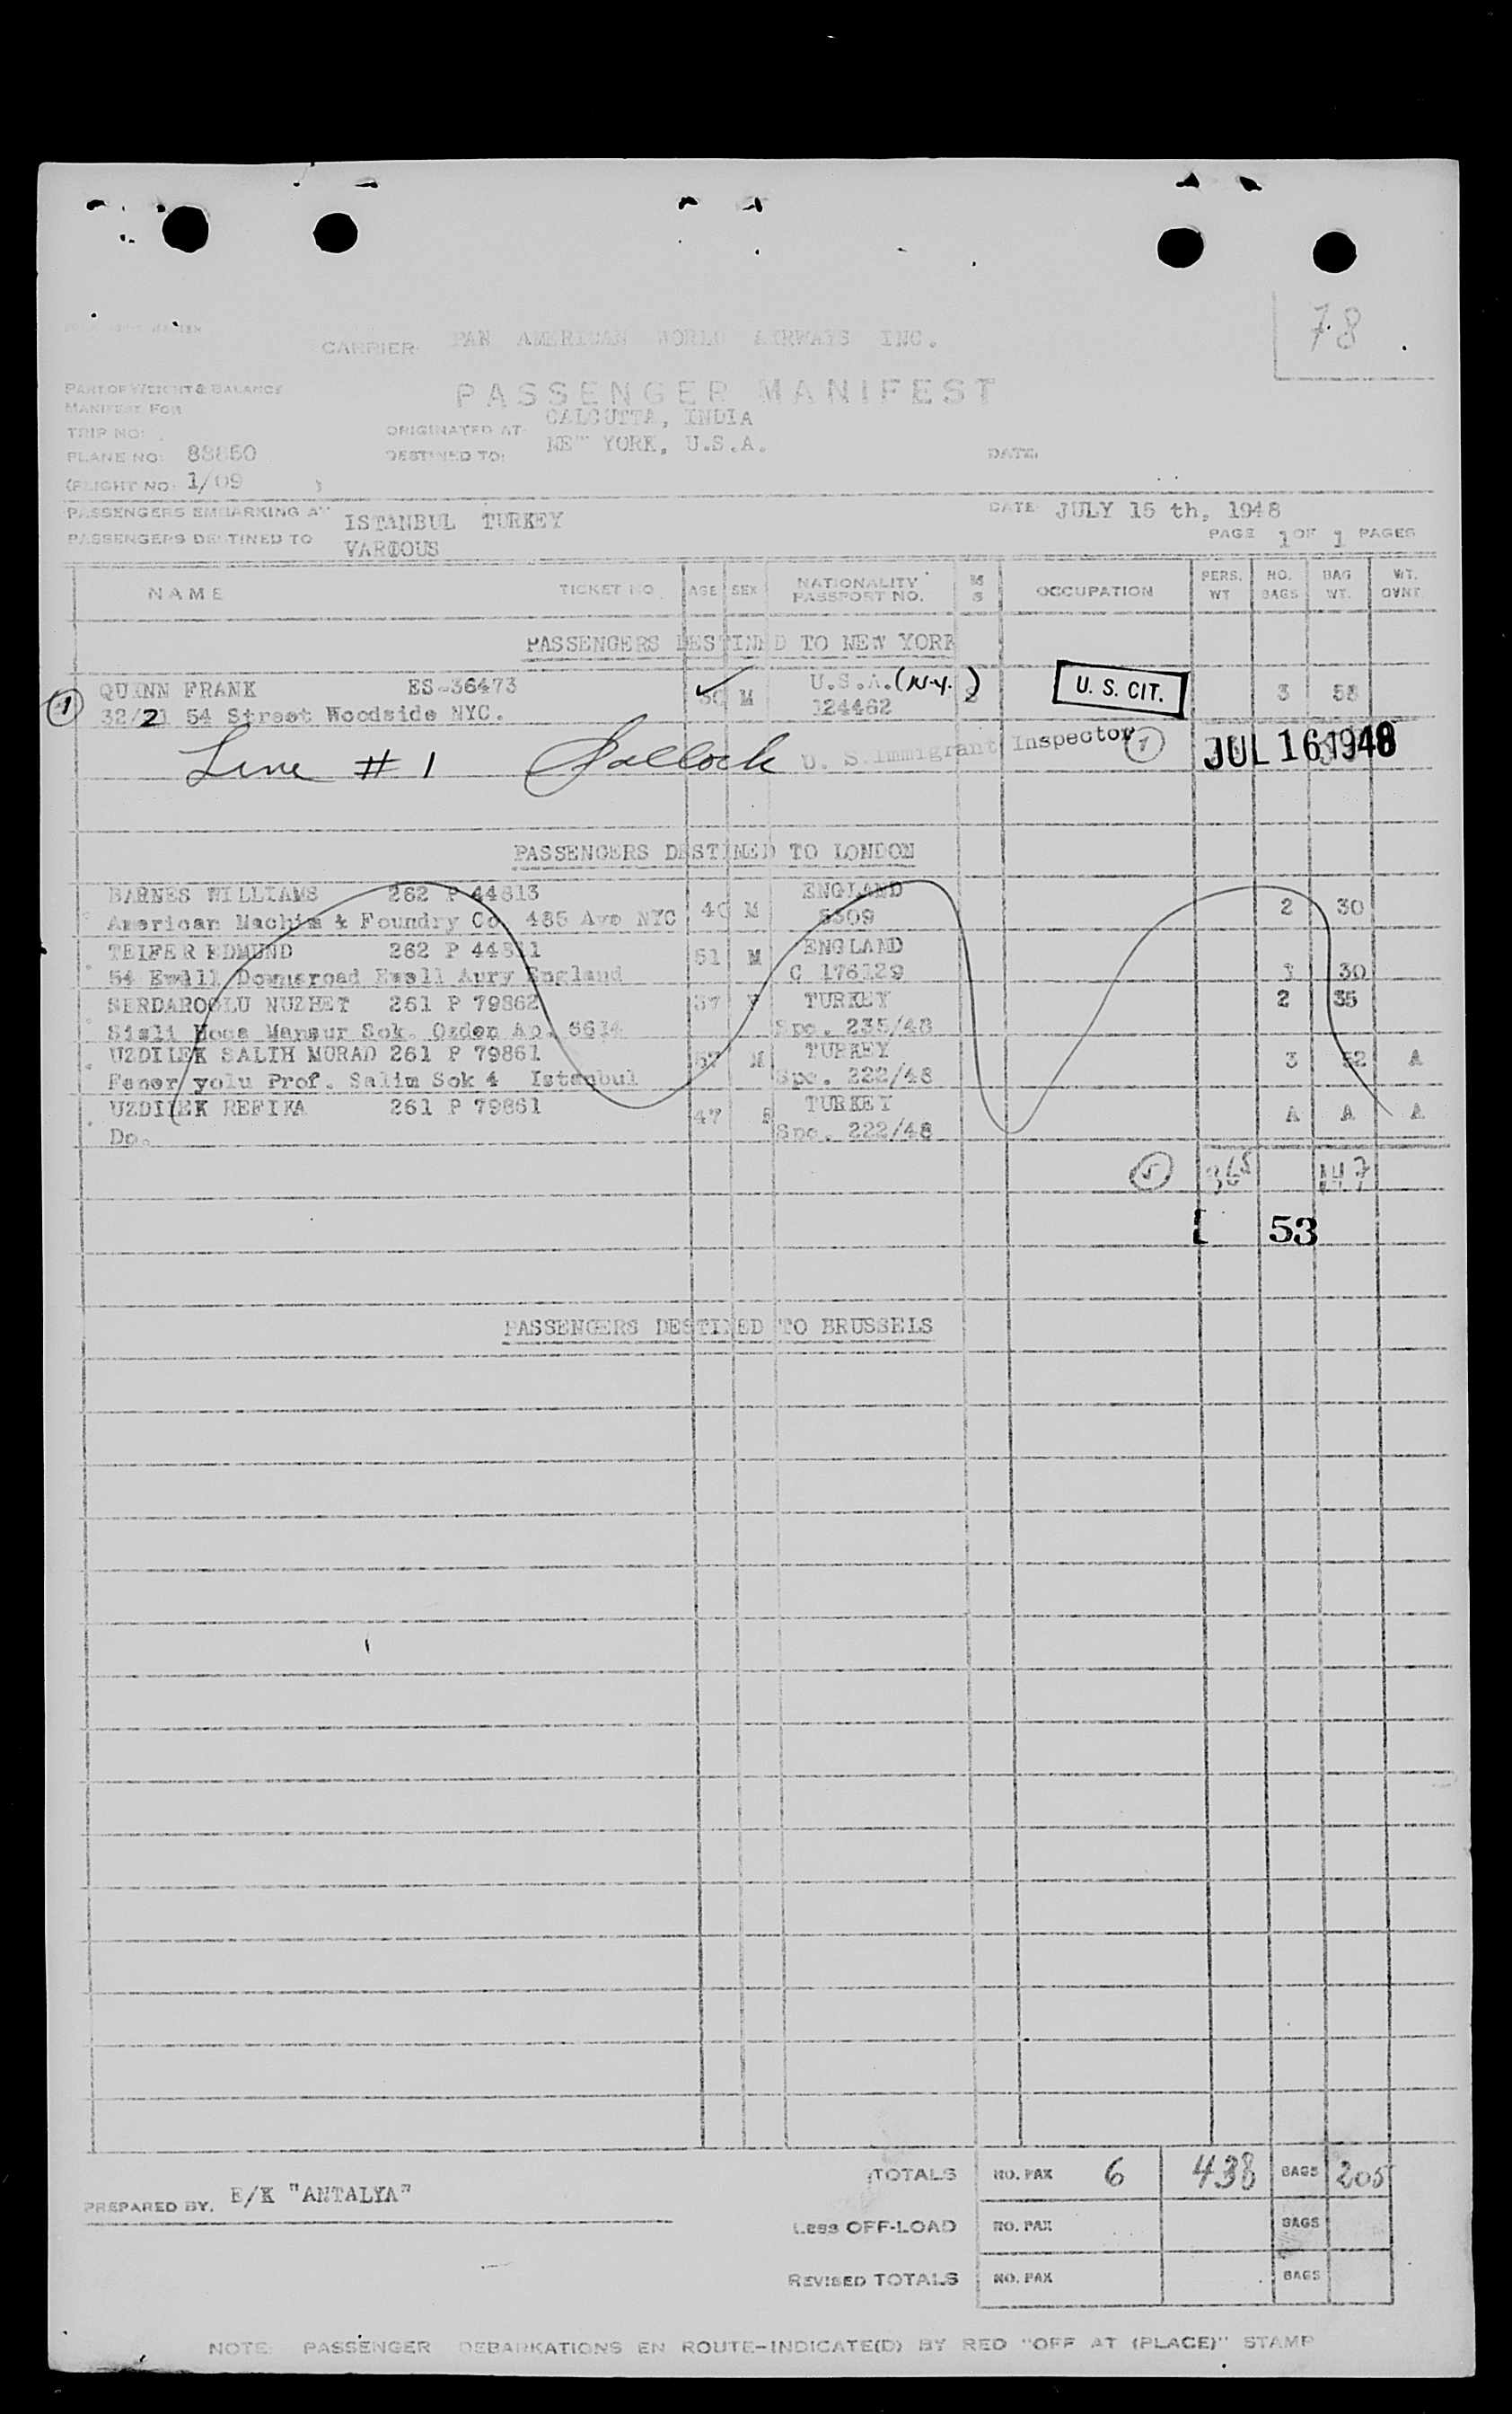 78
CARRIER: PAN AMERICAN WORLD AIRWAYS INC.
PART OF WEIGHT & BALANCE
MANIFEST FOR
PASSENGER MANIFEST
TRIP NO:
ORIGINATED AT: CALCUTTA, INDIA
PLANE NO: 88850
DESTINED TO: NEW YORK, U.S.A.
DATE:
(FLIGHT NO: 1/09 )
PASSENGERS EMBARKING AT ISTANBUL TURKEY
DATE JULY 15 th, 1948
PASSENGERS DESTINED TO VARIOUS
PAGE 1 OF 1 PAGES
NAME TICKET NO. AGE SEX NATIONALITY PASSPORT NO. M S OCCUPATION PERS. WT NO. BAGS BAG WT. WT. OVNT.
PASSENGERS DESTINED TO NEW YORK
1 QUINN FRANK ES-36473 M U.S.A. (N.Y. ) U. S. CIT. 3 58
32/21 54 Street Woodside NYC. 124462
Line # 1 U. S. Immigrant Inspector 1 JUL 16 1948
PASSENGERS DESTINED TO LONDON
BARNES WILLIAMS 262 P 44813 40 M ENGLAND 2 30
American Machim & Foundry Co 485 Ave NYC 5309
TEIFER EDMUND 262 P 44811 51 M ENGLAND
54 Ewell Downsroad Ewell Aury England C 176129 1 30
SERDAROGLU NUZHET 261 P 79862 37 F TURKEY 2 35
Sisli Hoca Mansur Sok. Ozden Ap. Spc. 235/48
UZDILEK SALIH MURAD 261 P 79861 57 M TURKEY 3 52 A
Fener yolu Prof. Salim Sok 4 Istanbul Spc. 222/48
UZDILEK REFIKA 261 P 79861 47 F TURKEY A A A
Do. Spc. 222/48
5 365 147
53
PASSENGERS DESTINED TO BRUSSELS
TOTALS NO. PAX 6 438 BAGS 205
PREPARED BY. E/K "ANTALYA"
Less OFF-LOAD NO. PAX BAGS
REVISED TOTALS NO. PAX BAGS
NOTE: PASSENGER DEBARKATIONS EN ROUTE-INDICATE(D) BY RED "OFF AT (PLACE)" STAMP